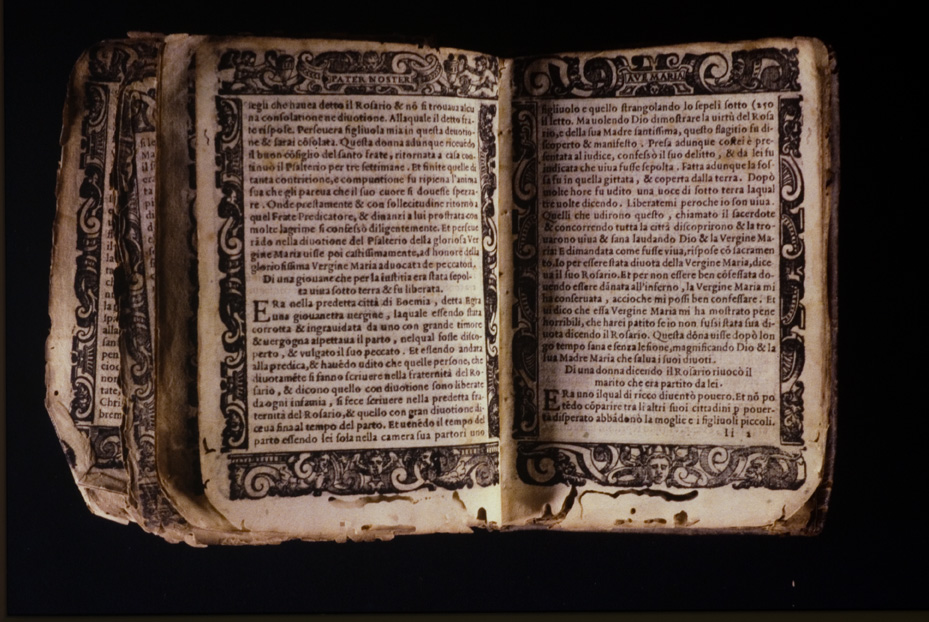 PATER NOSTER
segli che hauea detto il Rosario & nō si trouaua alcu
na consolatione ne diuotione. Alla quale il detto fra-
te rispose. Perseuera figliuola mia in questa deuotio-
ne & sarai cōsolata. Questa donna adunque riceuédo
il buon cōsiglio del santo frate, ritornata a casa con-
tinuò il Psalterio per tre settimane. Et finite quelle di
tanta contritione, e compuntione fu ripiena l'anima
sua che gli pareua che il suo cuore si douesse spezza-
re. Onde prestamente & con sollecitudine ritornò a
quel Frate Predicatore, & dinanzi a lui prostrata con
molte lagrime si confessò diligentemente. Et perseue
rādo nella diuotione del Psalterio della gloriosa Ver
gine Maria uisse poi castissimamente, ad honore della
gloriosissima Vergine Maria aduocata de peccatori.
Di una giouane che per la iustitia era stata sepol-
ta uiua sotto terra & fu liberata.
ERa nella predetta città di Boemia, detta Egra
una giouanetta uergine, laquale essendo stata
corrotta & ingrauidata da uno con grande timore
& uergogna aspettaua il parto, nel qual fosse disco-
perto, & vulgato il suo peccato. Et essendo andata
alla predica, & hauēdo udito che quelle persone, che
diuotamēte si fanno scriuere nella fraternità del Ro-
sario, & dicono quello con diuotione sono liberate
da ogni infamia, si fece scriuere nella predetta fra-
ternità del Rosario, & quello con gran diuotione di-
ceua fina al tempo del parto. Et uenēdo il tempo del
parto essendo lei sola nella camera sua partorì uno
AVE MARIA
figliuolo e quello strangolando lo sepelì sotto (250
il letto. Ma uolendo Dio dimostrare la uirtù del Rosa
rio, e della sua Madre santissima, questo flagitio fu di-
scoperto & manifesto. Presa adunque costei è pre-
sentata al iudice, confessò il suo delitto, & da lei fu
iudicata che uiua fusse sepolta. Fatta adunque la fos-
sa fu in quella gittata, & coperta dalla terra. Dopò
molte hore fu udito una uoce di sotto terra laqual
tre uolte dicendo. Liberatemi peroche io son uiua.
Quelli che udirono questo, chiamato il sacerdote
& concorrendo tutta la città discoprirono & la tro-
uarono uiua & sana laudando Dio & la Vergine Ma-
ria: E dimandata come fusse uiua, rispose cō sacramen
to. Io per essere stata diuota della Vergine Maria, dice
ua il suo Rosario. Et per non essere ben cōfessata do-
uendo essere dānata all'inferno, la Vergine Maria mi
ha conseruata, accioche mi possi ben confessare. Et
ui dico che essa Vergine Maria mi ha mostrato pene
horribili, che harei patito se io non fussi stata sua di-
uota dicendo il Rosario. Questa dōna uisse dapò lon
go tempo sana e senza lesione, magnificando Dio & la
sua Madre Maria che salua i suoi diuoti.
Di una donna dicendo il Rosario riuocò il
marito che era partito da lei.
ERa uno il qual di ricco diuentò pouero. Et nō po
tēdo cōparire tra li altri suoi cittadini p pouer-
tà disperato abbādonò la moglie e i figliuoli piccoli.
Ii 2